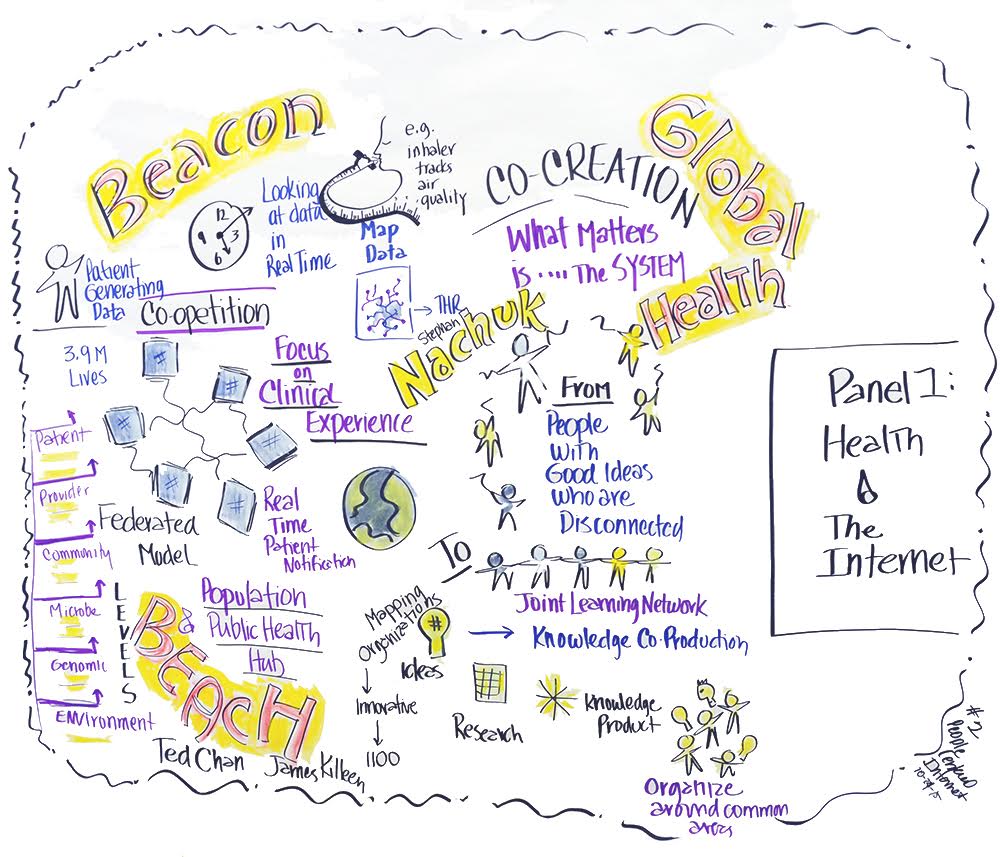 Beacon
12
3
6
Looking
at data
in
Real Time
e.g.
inhaler
tracks
air
quality
Map
Data
THR
Patient
Generating
Data
Co-opetition
3.9 M
Lives
Focus
on
Clinical
Experience
#
#
#
#
#
#
Federated
Model
Real
Time
Patient
Notification
Patient
Provider
Community
Microbe
Genomic
ENVironment
LEVELS
&
BEACH
Population
Public Health
Hub
Ted Chan
James Killeen
CO-CREATION
What Matters
is .... The SYSTEM
Global
Health
Stephan
Nachuk
From
People
With
Good Ideas
Who are
Disconnected
To
Joint Learning Network
Knowledge Co-Production
Mapping
Organizations
#
Ideas
Innovative
1100
Research
Knowledge
Product
Organize
around common
areas
Panel 1:
Health
&
The
Internet
#2
People
Internet